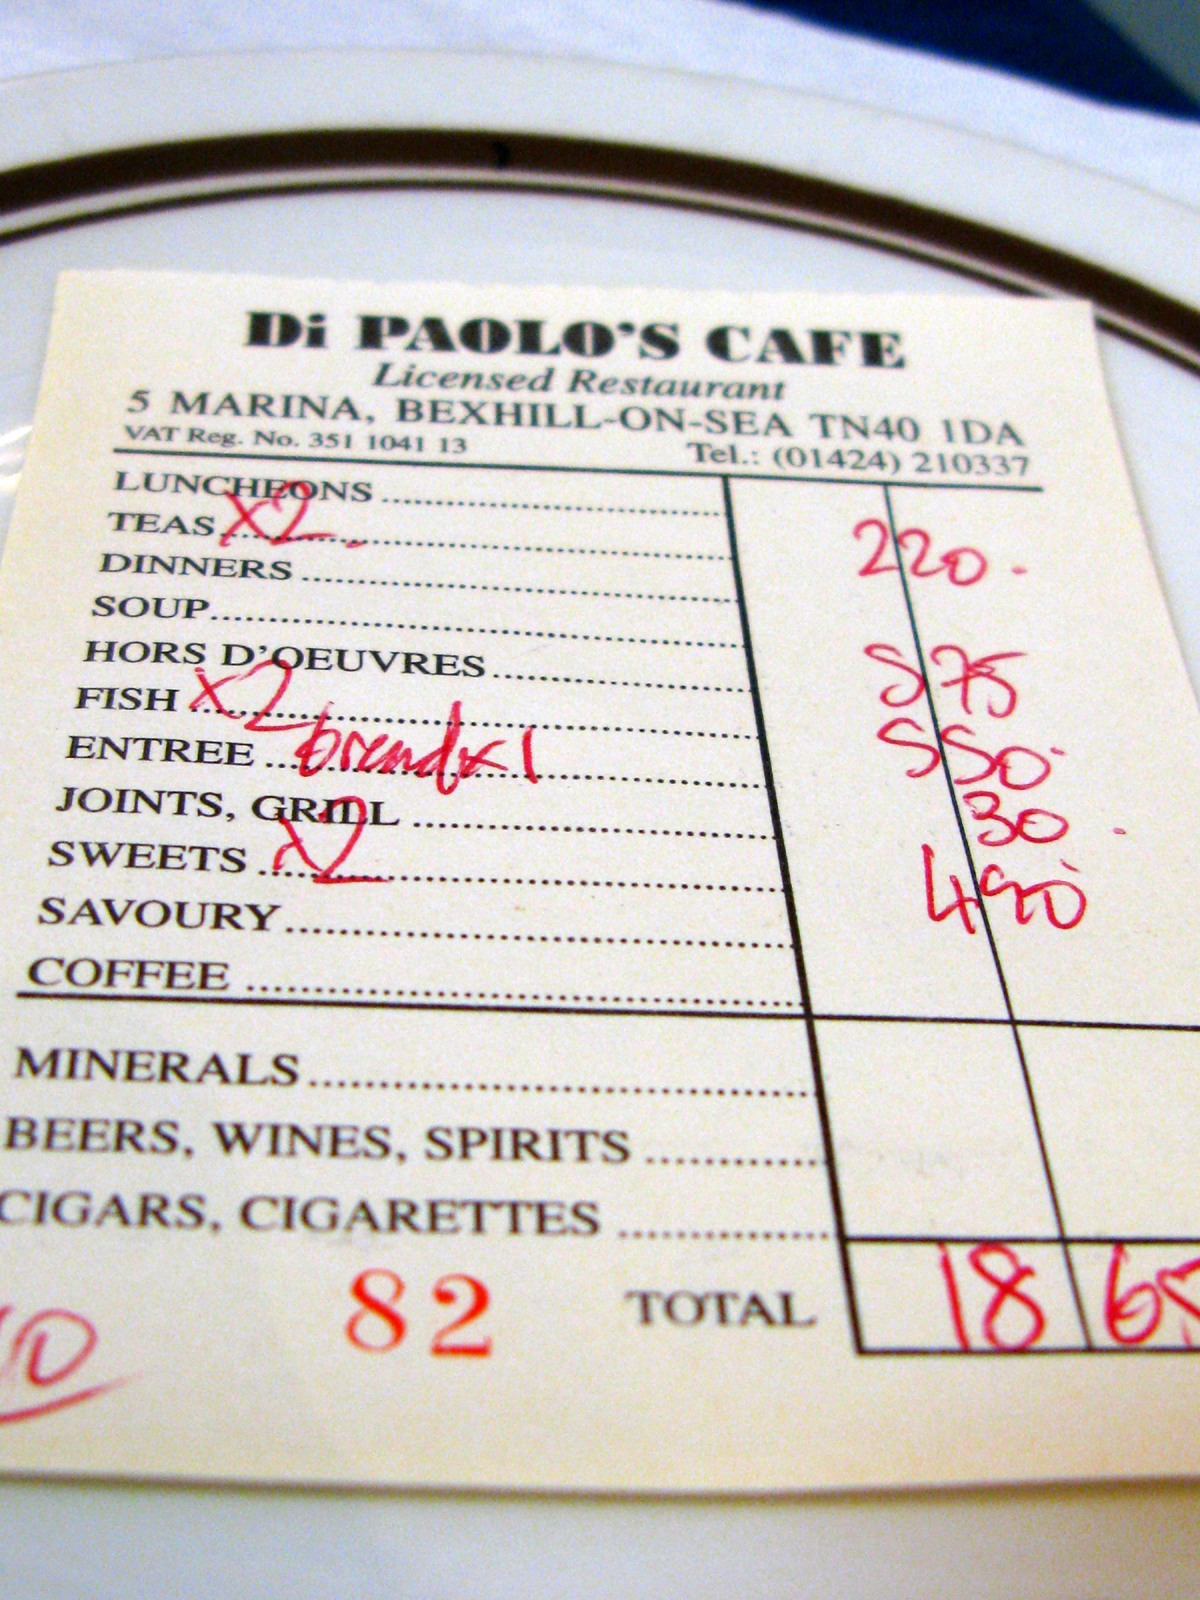 Di PAOLO'S CAFE
Licensed Restaurant
5 MARINA, BEXHILL-ON-SEA TN40 1DA
VAT Reg. No. 351 1041 13 Tel.: (01424) 210337
LUNCHEONS
TEAS x2 220
DINNERS
SOUP
HORS D'OEUVRES 575
FISH x2 550
ENTREE bread x1 30
JOINTS, GRILL
SWEETS x2 490
SAVOURY
COFFEE
MINERALS
BEERS, WINES, SPIRITS
CIGARS, CIGARETTES
82 TOTAL 18 65